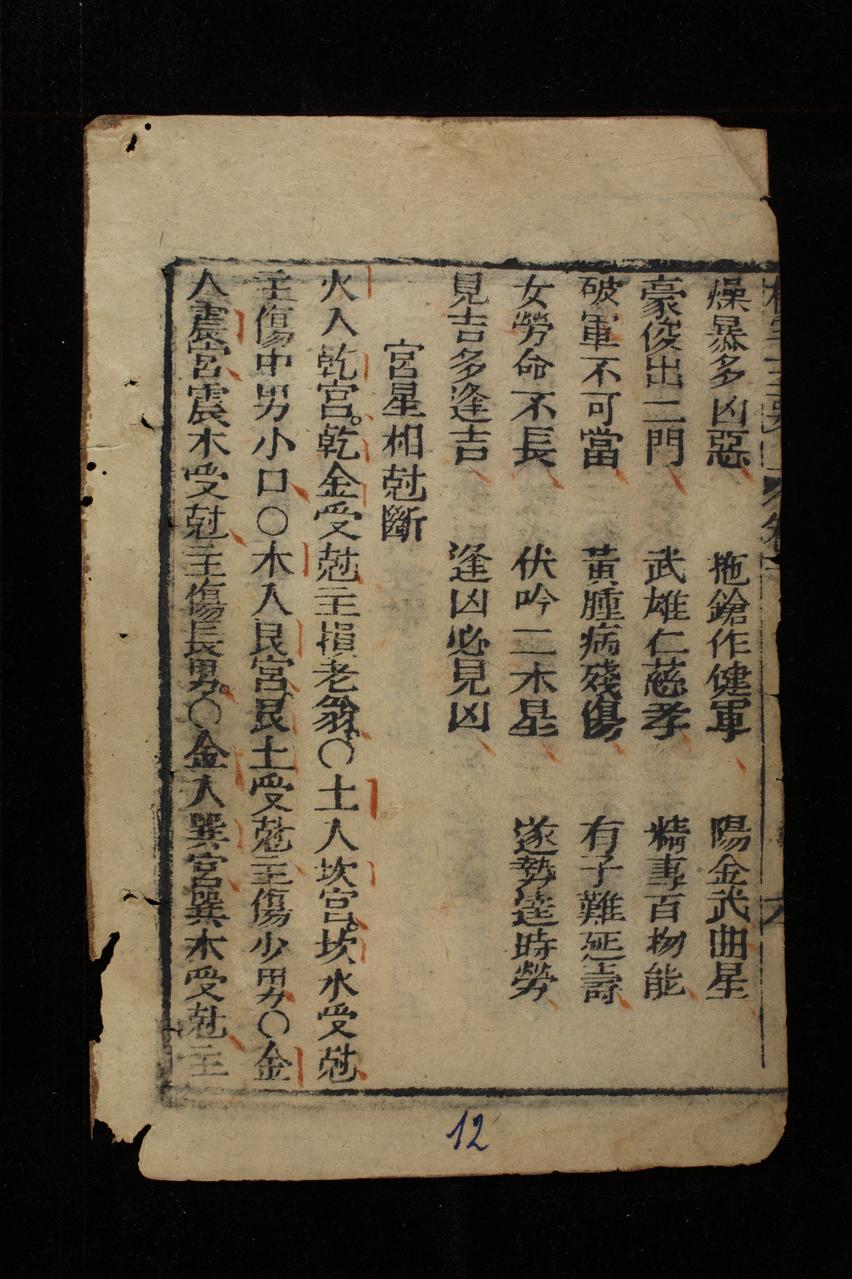 燥暴多凶惡 拖鎗作健軍 陽金武曲星
豪俊出二門 武雄仁慈孝 精事百物能
破軍不可當 黃腫病殘傷 有子難延壽
女勞命不長 伏吟二木星 遂勢逹時勞
見吉多逢吉 逢凶必見凶
宮星相尅斷
火入乾宮。乾金受尅主損老翁〇土入坎宮。坎水受尅
主傷中男小口〇木入艮宮艮土受尅主傷少男〇金
入震宮震木受尅主傷長男〇金入巽宮巽木受尅主
12